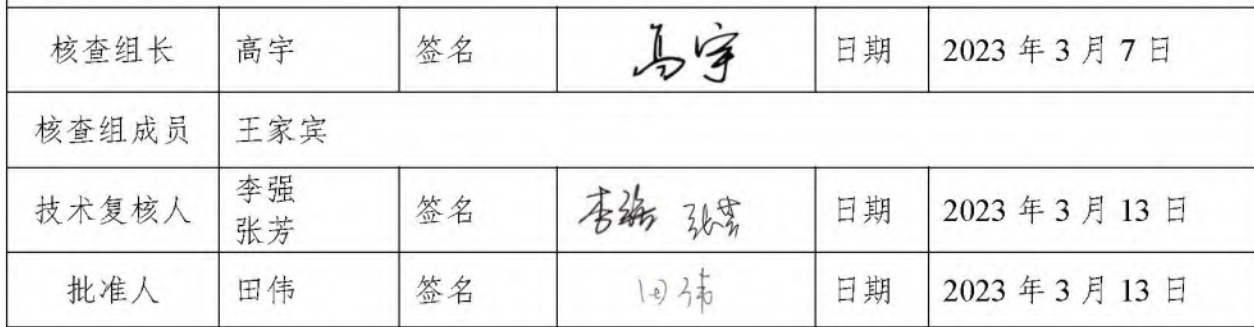 核查组长 高宇 签名 高宇 日期 2023 年 3 月 7 日
核查组成员 王家宾
技术复核人 李强 张芳 签名 李强 张芳 日期 2023 年 3 月 13 日
批准人 田伟 签名 田伟 日期 2023 年 3 月 13 日